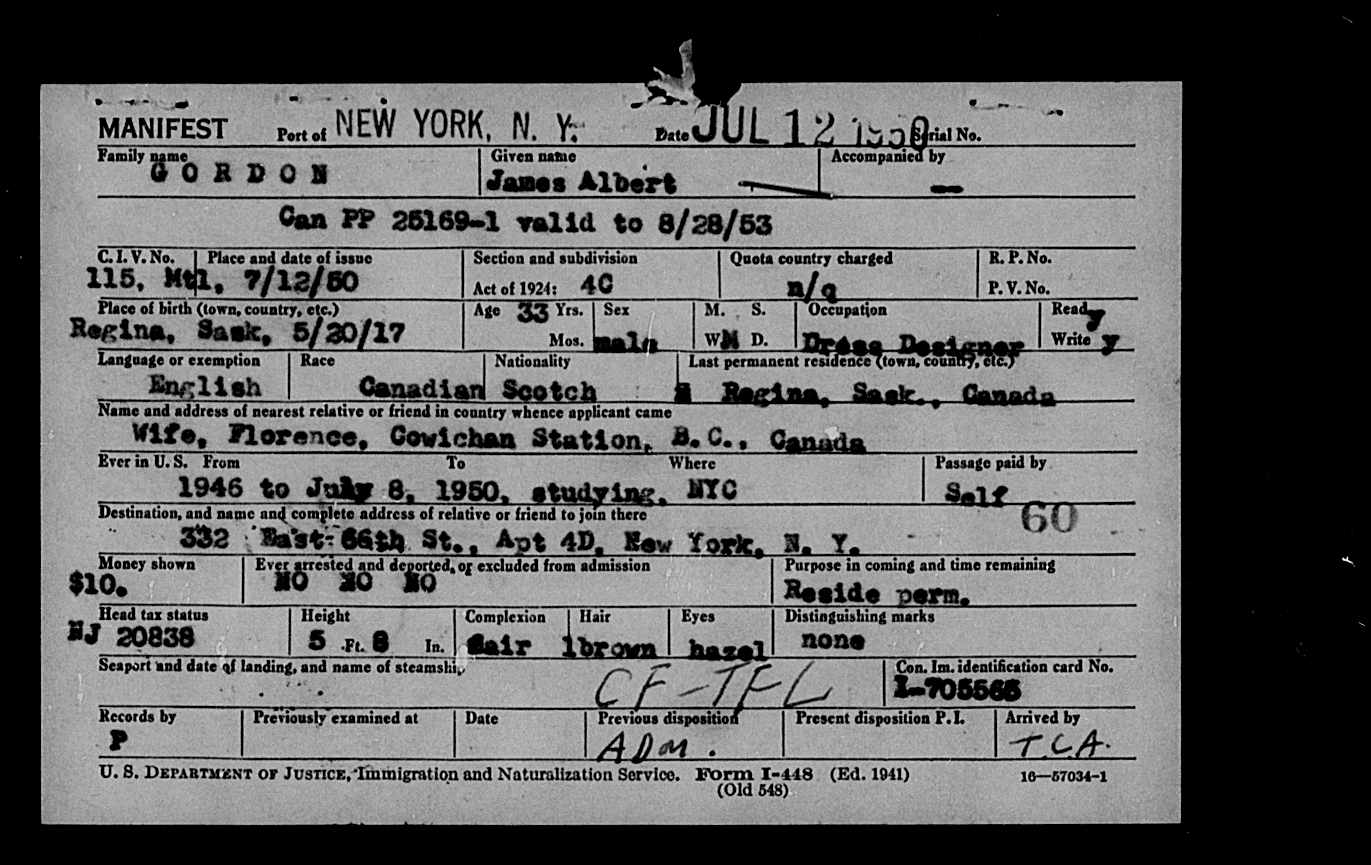 MANIFEST Port of NEW YORK, N. Y. Date JUL 12 1950 Serial No.
Family name Given name Accompanied by
GORDON James Albert —
Can PP 25169-1 valid to 8/28/53
C. I. V. No. Place and date of issue Section and subdivision Quota country charged R. P. No.
115, Mtl, 7/12/50 Act of 1924: 4C n/q P. V. No.
Place of birth (town, country, etc.) Age 33 Yrs. Sex M. S. Occupation Read y
Regina, Sask, 5/20/17 Mos. male W M D. Dress Designer Write y
Language or exemption Race Nationality Last permanent residence (town, country, etc.)
English Canadian Scotch Regina, Sask., Canada
Name and address of nearest relative or friend in country whence applicant came
Wife, Florence, Cowichan Station, B.C., Canada
Ever in U. S. From To Where Passage paid by
1946 to July 8, 1950, studying, NYC Self
Destination, and name and complete address of relative or friend to join there 60
332 East 66th St., Apt 4D, New York, N. Y.
Money shown Ever arrested and deported, or excluded from admission Purpose in coming and time remaining
$10. NO NO NO Reside perm.
Head tax status Height Complexion Hair Eyes Distinguishing marks
NJ 20838 5 Ft. 8 In. fair lbrown hazel none
Seaport and date of landing, and name of steamship Con. Im. identification card No.
CF-TFL I-705565
Records by Previously examined at Date Previous disposition Present disposition P. I. Arrived by
P ADM. T.C.A.
U. S. DEPARTMENT OF JUSTICE, Immigration and Naturalization Service. Form I-448 (Ed. 1941) 16—57034-1
(Old 548)